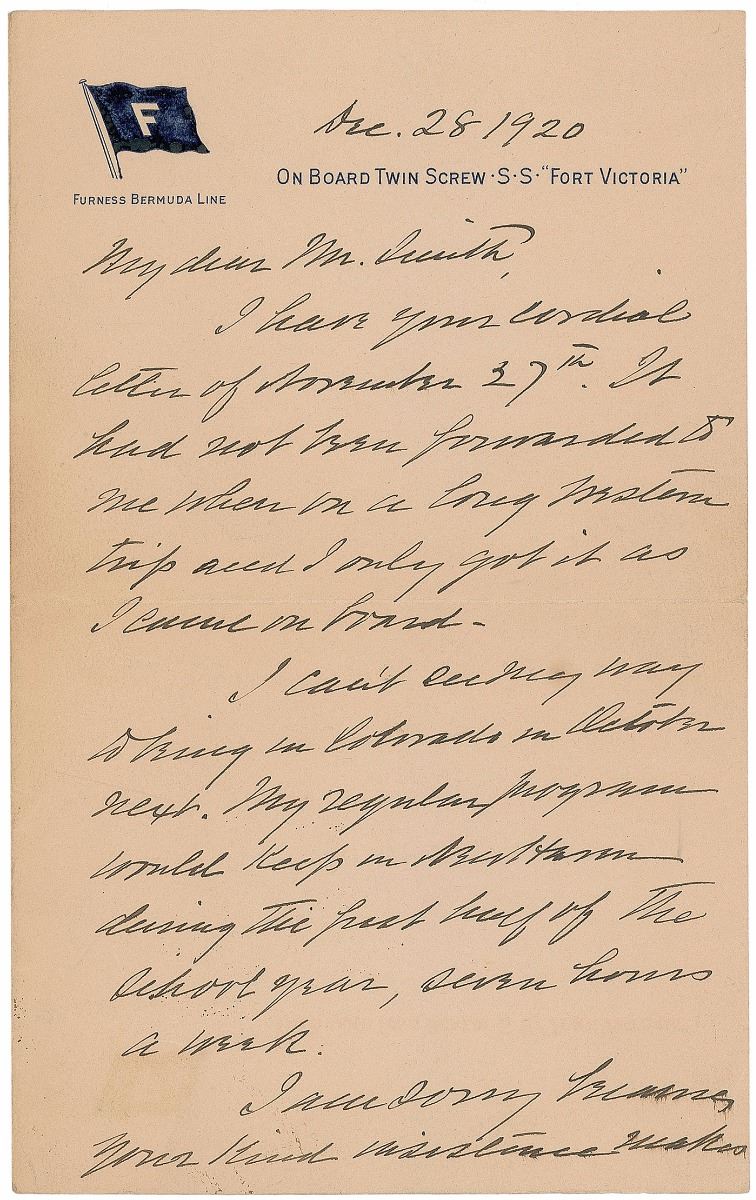 F
FURNESS BERMUDA LINE
Dec. 28 1920
ON BOARD TWIN SCREW·S·S·"FORT VICTORIA"
My dear Mr. Smith,
I have your cordial
letter of November 27th. It
had not been forwarded to
me when on a long Western
trip and I only got it as
I came on board -
I can't see my way
to being in Colorado in October
next. My regular program
would keep in New Haven
during the first half of the
school year, seven hours
a week.
I am sorry because
your kind insistence makes